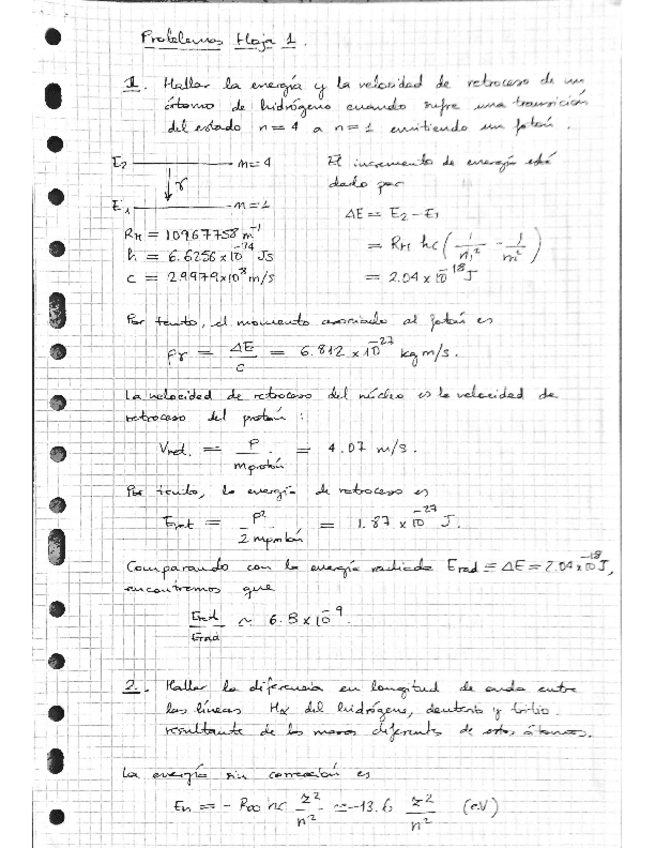 Problemas Hoja 1.
1. Hallar la energía y la velocidad de retroceso de un
átomo de hidrógeno cuando sufre una transición
del estado n = 4 a n = 1 emitiendo un fotón.
E₂ n = 4
γ
E₁ n = 1
R_H = 10967758 m⁻¹
h = 6.6256 × 10⁻³⁴ Js
c = 2.9979 × 10⁸ m/s
El incremento de energía está
dado por
ΔE = E₂ - E₁
= R_H hc (1/n₁² - 1/m²)
= 2.04 × 10⁻¹⁸ J
Por tanto, el momento asociado al fotón es
Pγ = ΔE/c = 6.812 × 10⁻²⁷ kg m/s.
La velocidad de retroceso del núcleo es la velocidad de
retroceso del protón:
V_ret. = P/m_protón = 4.07 m/s.
Por tanto, la energía de retroceso es
E_ret = P²/2 m_protón = 1.87 × 10⁻²⁷ J.
Comparando con la energía radiada E_rad = ΔE = 2.04 × 10⁻¹⁸ J,
encontramos que
E_ret/E_rad ~ 6.8 × 10⁻⁹.
2. Hallar la diferencia en longitud de onda entre
las líneas Hα del hidrógeno, deuterio y tritio
resultante de las masas diferentes de estos átomos.
La energía sin corrección es
En = - R∞ hc z²/n² ≃ -13.6 z²/n² (eV)